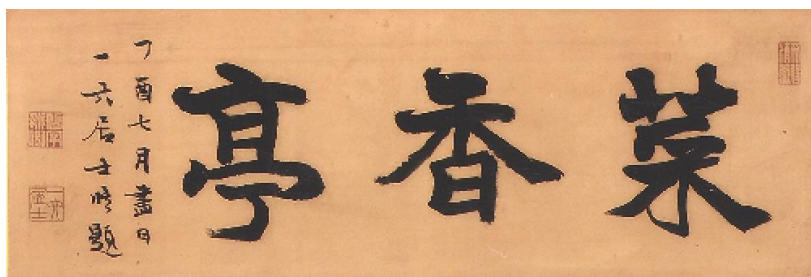 菜香亭
丁酉七月盡日
一六居士修題